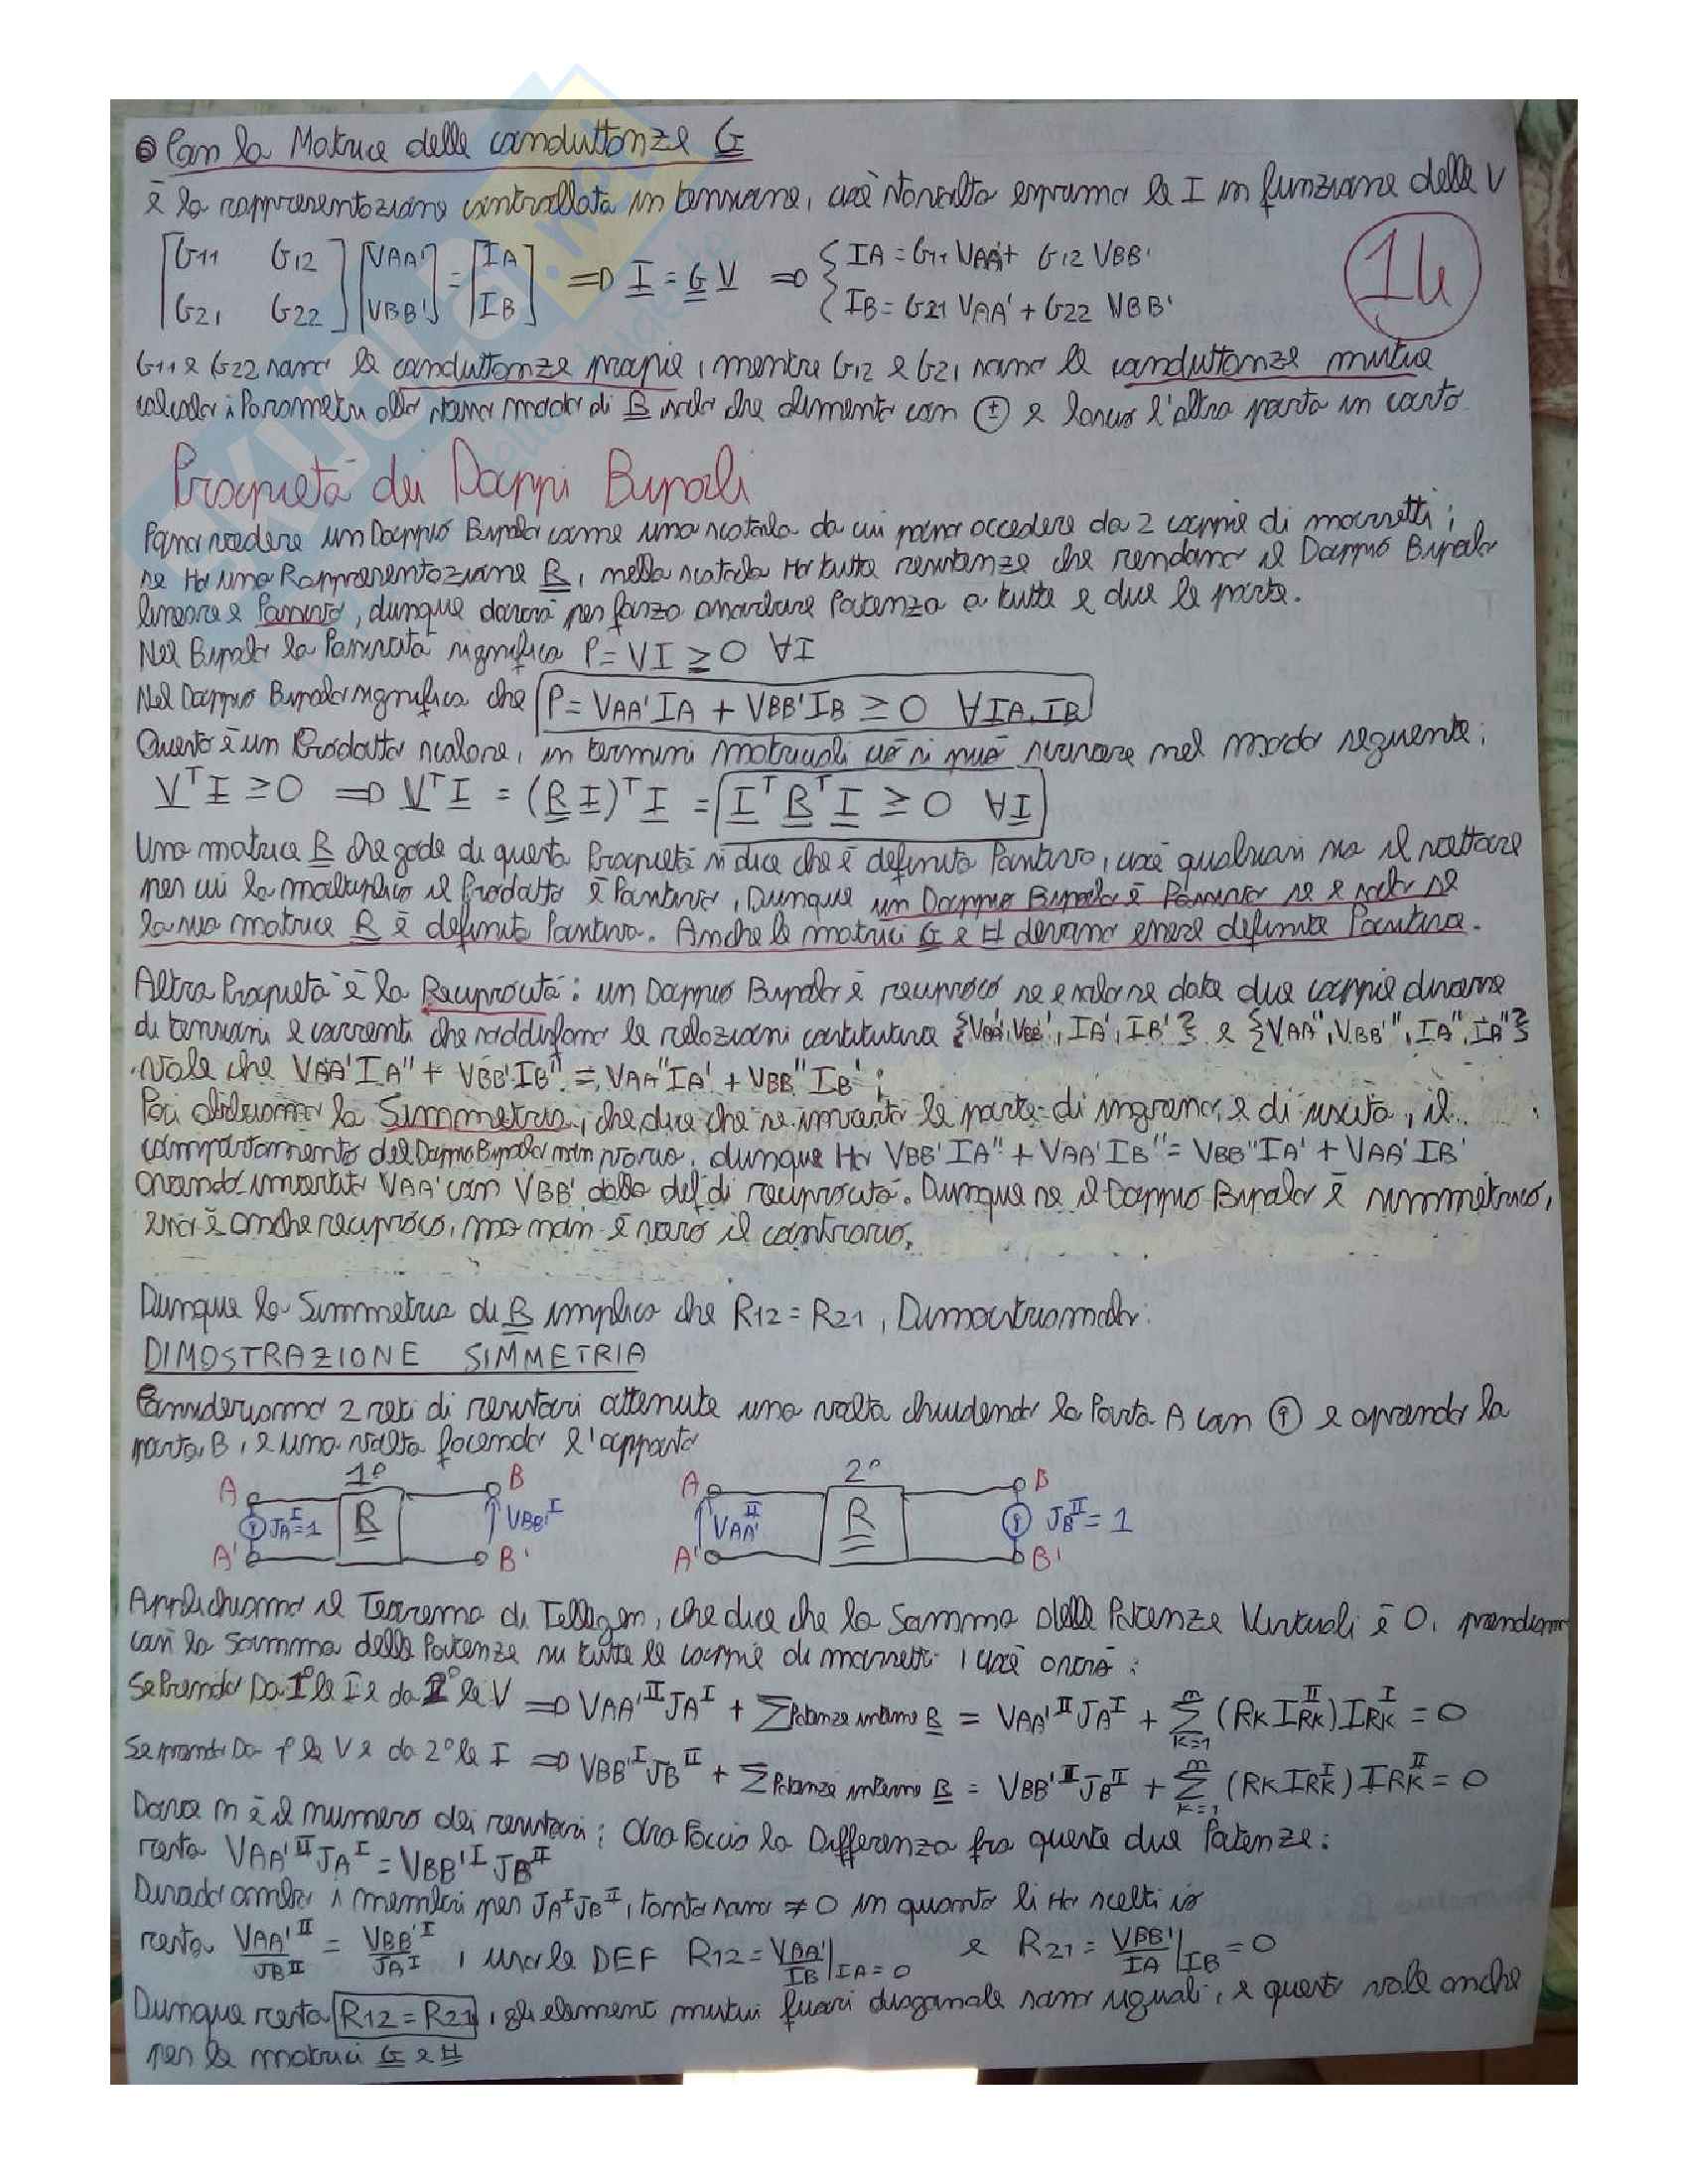 Con la Matrice delle conduttanze G
è la rappresentazione controllata in tensione, cioè stavolta esprimo le I in funzione delle V
[G11 G12; G21 G22] [VAA'; VBB'] = [IA; IB] => I = G V => { IA = G11 VAA' + G12 VBB'
IB = G21 VAA' + G22 VBB'
14
G11 e G22 sono le conduttanze proprie, mentre G12 e G21 sono le conduttanze mutue
calcolo i Parametri allo stesso modo di R solo che alimento con ± e lascio l'altra porta in corto
Proprietà dei Doppi Bipoli
Posso vedere un Doppio Bipolo come una scatola da cui posso accedere da 2 coppie di morsetti;
se Ho una Rappresentazione R, nella scatola Ho tutte resistenze che rendono il Doppio Bipolo
lineare e Passivo, dunque dovrà per forza assorbire Potenza a tutte e due le porte.
Nel Bipolo la Passività significa P = VI ≥ 0 ∀I
Nel Doppio Bipolo significa che P = VAA' IA + VBB' IB ≥ 0 ∀IA, IB
Questo è un Prodotto scalare, in termini matriciali ciò si può scrivere nel modo seguente:
V^T I ≥ 0 => V^T I = (R I)^T I = I^T R^T I ≥ 0 ∀I
Una matrice R che gode di questa Proprietà si dice che è definita Positiva, cioè qualsiasi sia il vettore
per cui la moltiplico il Prodotto è Positivo, Dunque un Doppio Bipolo è Passivo se e solo se
la sua matrice R è definita Positiva. Anche le matrici G e H devono essere definite Positive.
Altra Proprietà è la Reciprocità: un Doppio Bipolo è reciproco se e solo se date due coppie diverse
di tensioni e correnti che soddisfano le relazioni costitutive {VAA', VBB', IA', IB'} e {VAA'', VBB'', IA'', IA''}
Vale che VAA' IA'' + VBB' IB'' = VAA'' IA' + VBB'' IB';
Poi abbiamo la Simmetria, che dice che se inverto le porte di ingresso e di uscita, il
comportamento del Doppio Bipolo non varia, dunque Ho VBB' IA'' + VAA' IB'' = VBB'' IA' + VAA' IB'
avendo invertito VAA' con VBB' dalla def di reciprocità. Dunque se il Doppio Bipolo è simmetrico,
esso è anche reciproco, ma non è vero il contrario.
Dunque la Simmetria di R implica che R12 = R21, Dimostriamolo:
DIMOSTRAZIONE SIMMETRIA
Consideriamo 2 reti di resistori ottenute una volta chiudendo la Porta A con ↑ e aprendo la
porta B, e una volta facendo l'opposto
1° 2°
A B A B
JA^I=1 R VBB'^I VAA'^II R JB^II = 1
A' B' A' B'
Applichiamo il Teorema di Tellegen, che dice che la Somma delle Potenze Virtuali è 0, prendiamo
così la Somma delle Potenze su tutte le coppie di morsetti, cioè avrò:
Se Prendo Da 1° le I e da 2° le V => VAA'^II JA^I + ∑Potenze interne R = VAA'^II JA^I + ∑_{K=1}^{m} (RK IRK^II) IRK^I = 0
Se prendo Da 1° le V e da 2° le I => VBB'^I JB^II + ∑Potenze interne R = VBB'^I JB^II + ∑_{K=1}^{m} (RK IRK^I) IRK^II = 0
Dove m è il numero dei resistori; Ora Faccio la Differenza fra queste due Potenze:
resta VAA'^II JA^I = VBB'^I JB^II
Divido ambo i membri per JA^I JB^II, tanto sono ≠ 0 in quanto li Ho scelti io
resta VAA'^II/JB^II = VBB'^I/JA^I, uso le DEF R12 = VAA'/IB |IA = 0 e R21 = VBB'/IA |IB = 0
Dunque resta R12 = R21, gli elementi mutui fuori diagonale sono uguali, e questo vale anche
per le matrici G e H